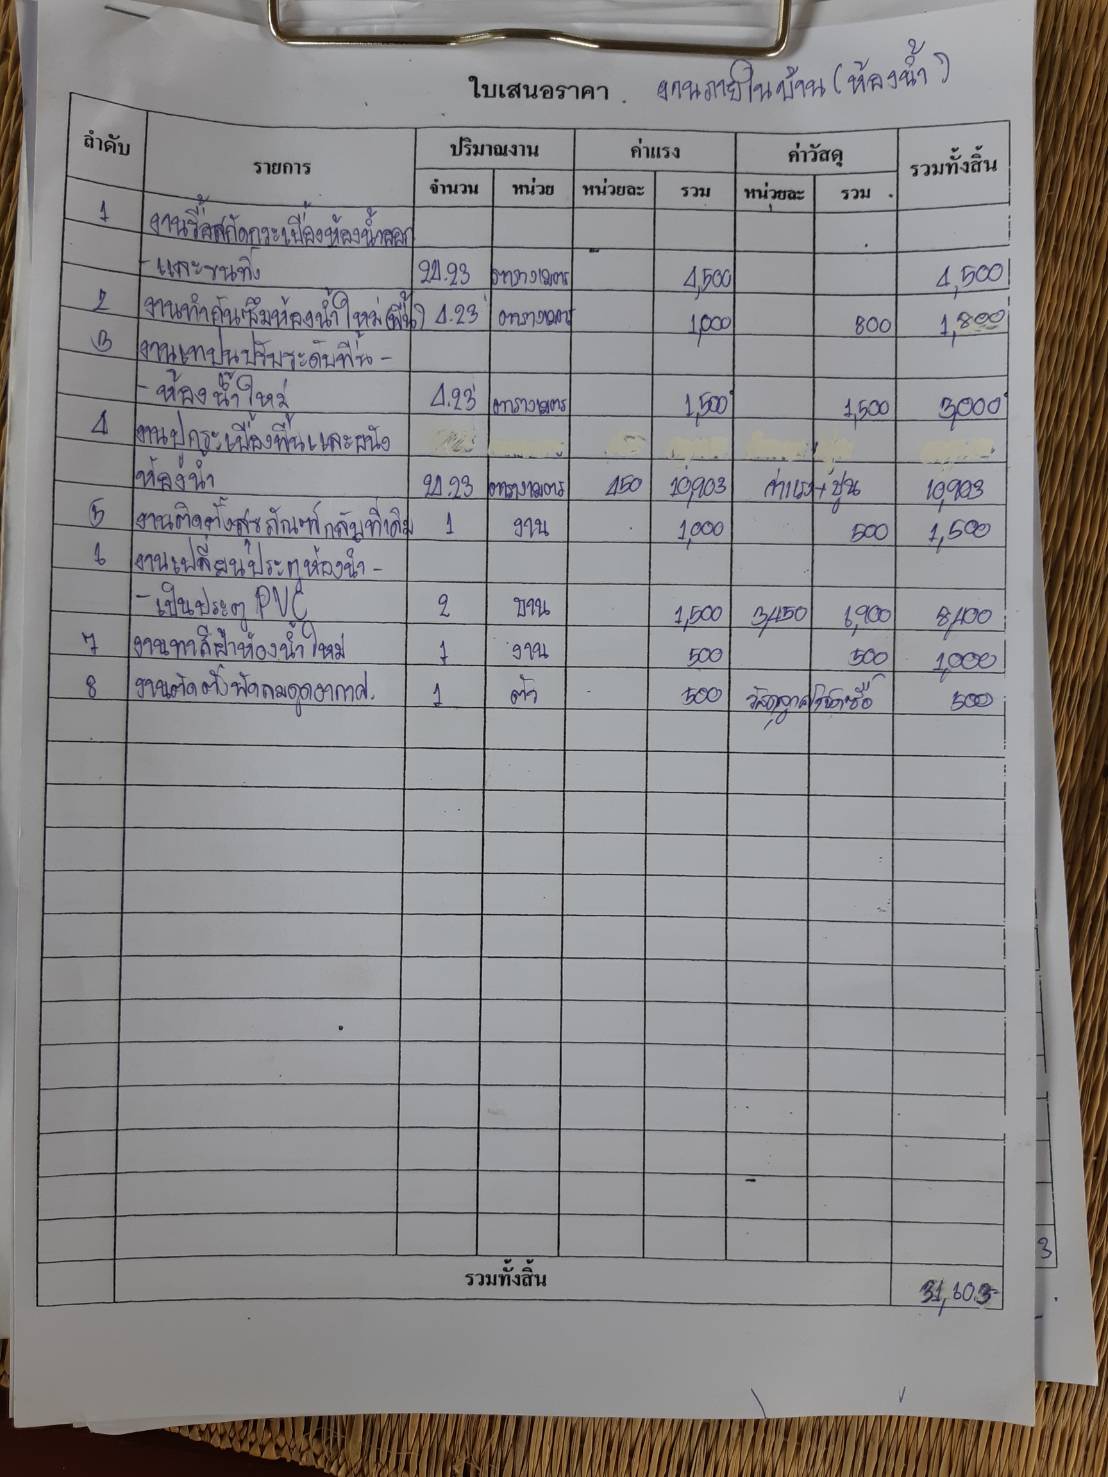 ใบเสนอราคา งานภายในบ้าน (ห้องน้ำ)
ลำดับ รายการ ปริมาณงาน ค่าแรง ค่าวัสดุ รวมทั้งสิ้น
จำนวน หน่วย หน่วยละ รวม หน่วยละ รวม
1 งานรื้อสกัดกระเบื้องห้องน้ำออก
- และขนทิ้ง 24.23 ตารางเมตร 4,500 4,500
2 งานทำกันซึมห้องน้ำใหม่(พื้น) 4.23 ตารางเมตร 1,000 800 1,800
3 งานเทปูนปรับระดับพื้น -
- ห้องน้ำใหม่ 4.23 ตารางเมตร 1,500 1,500 3,000
4 งานปูกระเบื้องพื้นและผนัง
ห้องน้ำ 24.23 ตารางเมตร 450 10,903 ค่าแรง+ปูน 10,903
5 งานติดตั้งสุขภัณฑ์กลับที่เดิม 1 งาน 1,000 500 1,500
6 งานเปลี่ยนประตูห้องน้ำ -
- เป็นประตู PVC 2 บาน 1,500 3,450 6,900 8,400
7 งานทาสีฝ้าห้องน้ำใหม่ 1 งาน 500 500 1,000
8 งานติดตั้งพัดลมดูดอากาศ. 1 ตัว 500 500
รวมทั้งสิ้น 31,603
3